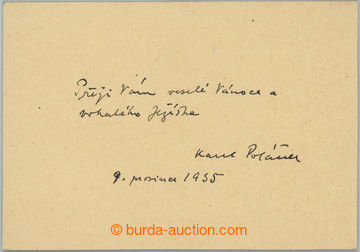 Přeji Vám veselé Vánoce a
bohatého Ježíška
Karel Poláček
9. prosince 1935
© burda-auction.com